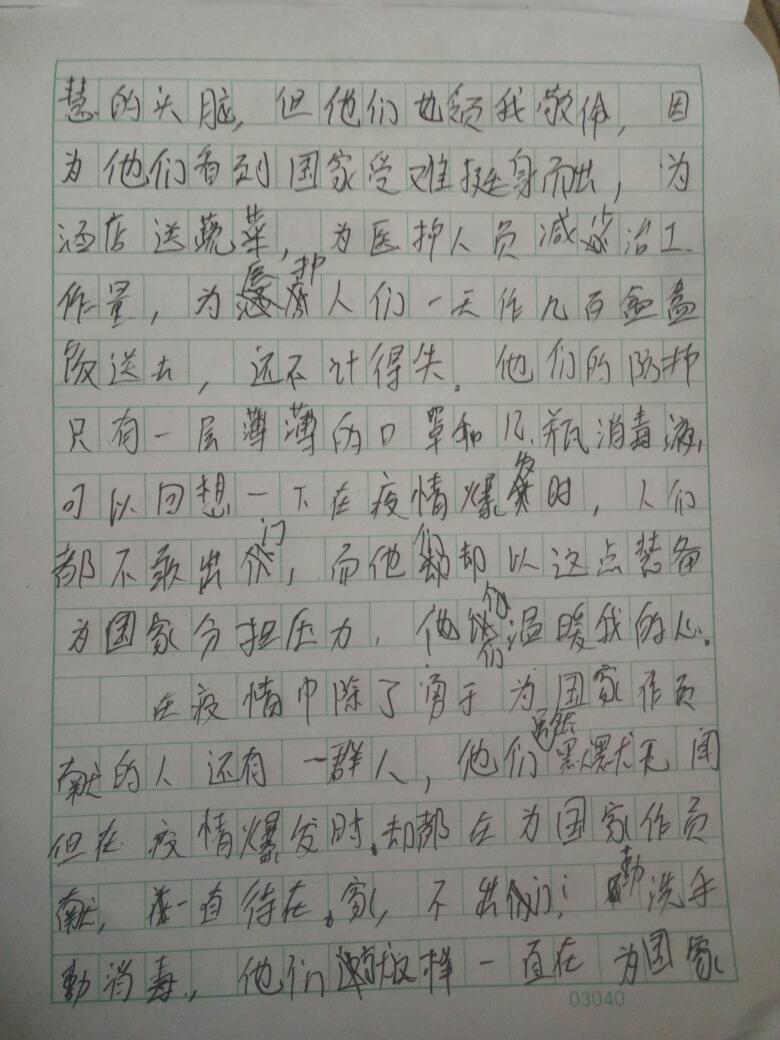 慧的头脑，但他们也须我敬佩，因
为他们看到国家受难挺身而出，为
酒店送蔬菜，为医护人员减少治工
作量，为医护人们一天作几百盒盖
饭送去，还不计得失。他们的防护
只有一层薄薄的口罩和几瓶消毒液，
可以回想一下在疫情爆发时，人们
都不敢出门，而他们却以这点装备
为国家分担压力，他们温暖我的心。
在疫情中除了勇于为国家作贡
献的人还有一群人，他们虽然默默无闻
但在疫情爆发时，却都在为国家作贡
献，一直待在家，不出门；勤洗手
勤消毒，他们这样一直在为国家
03040